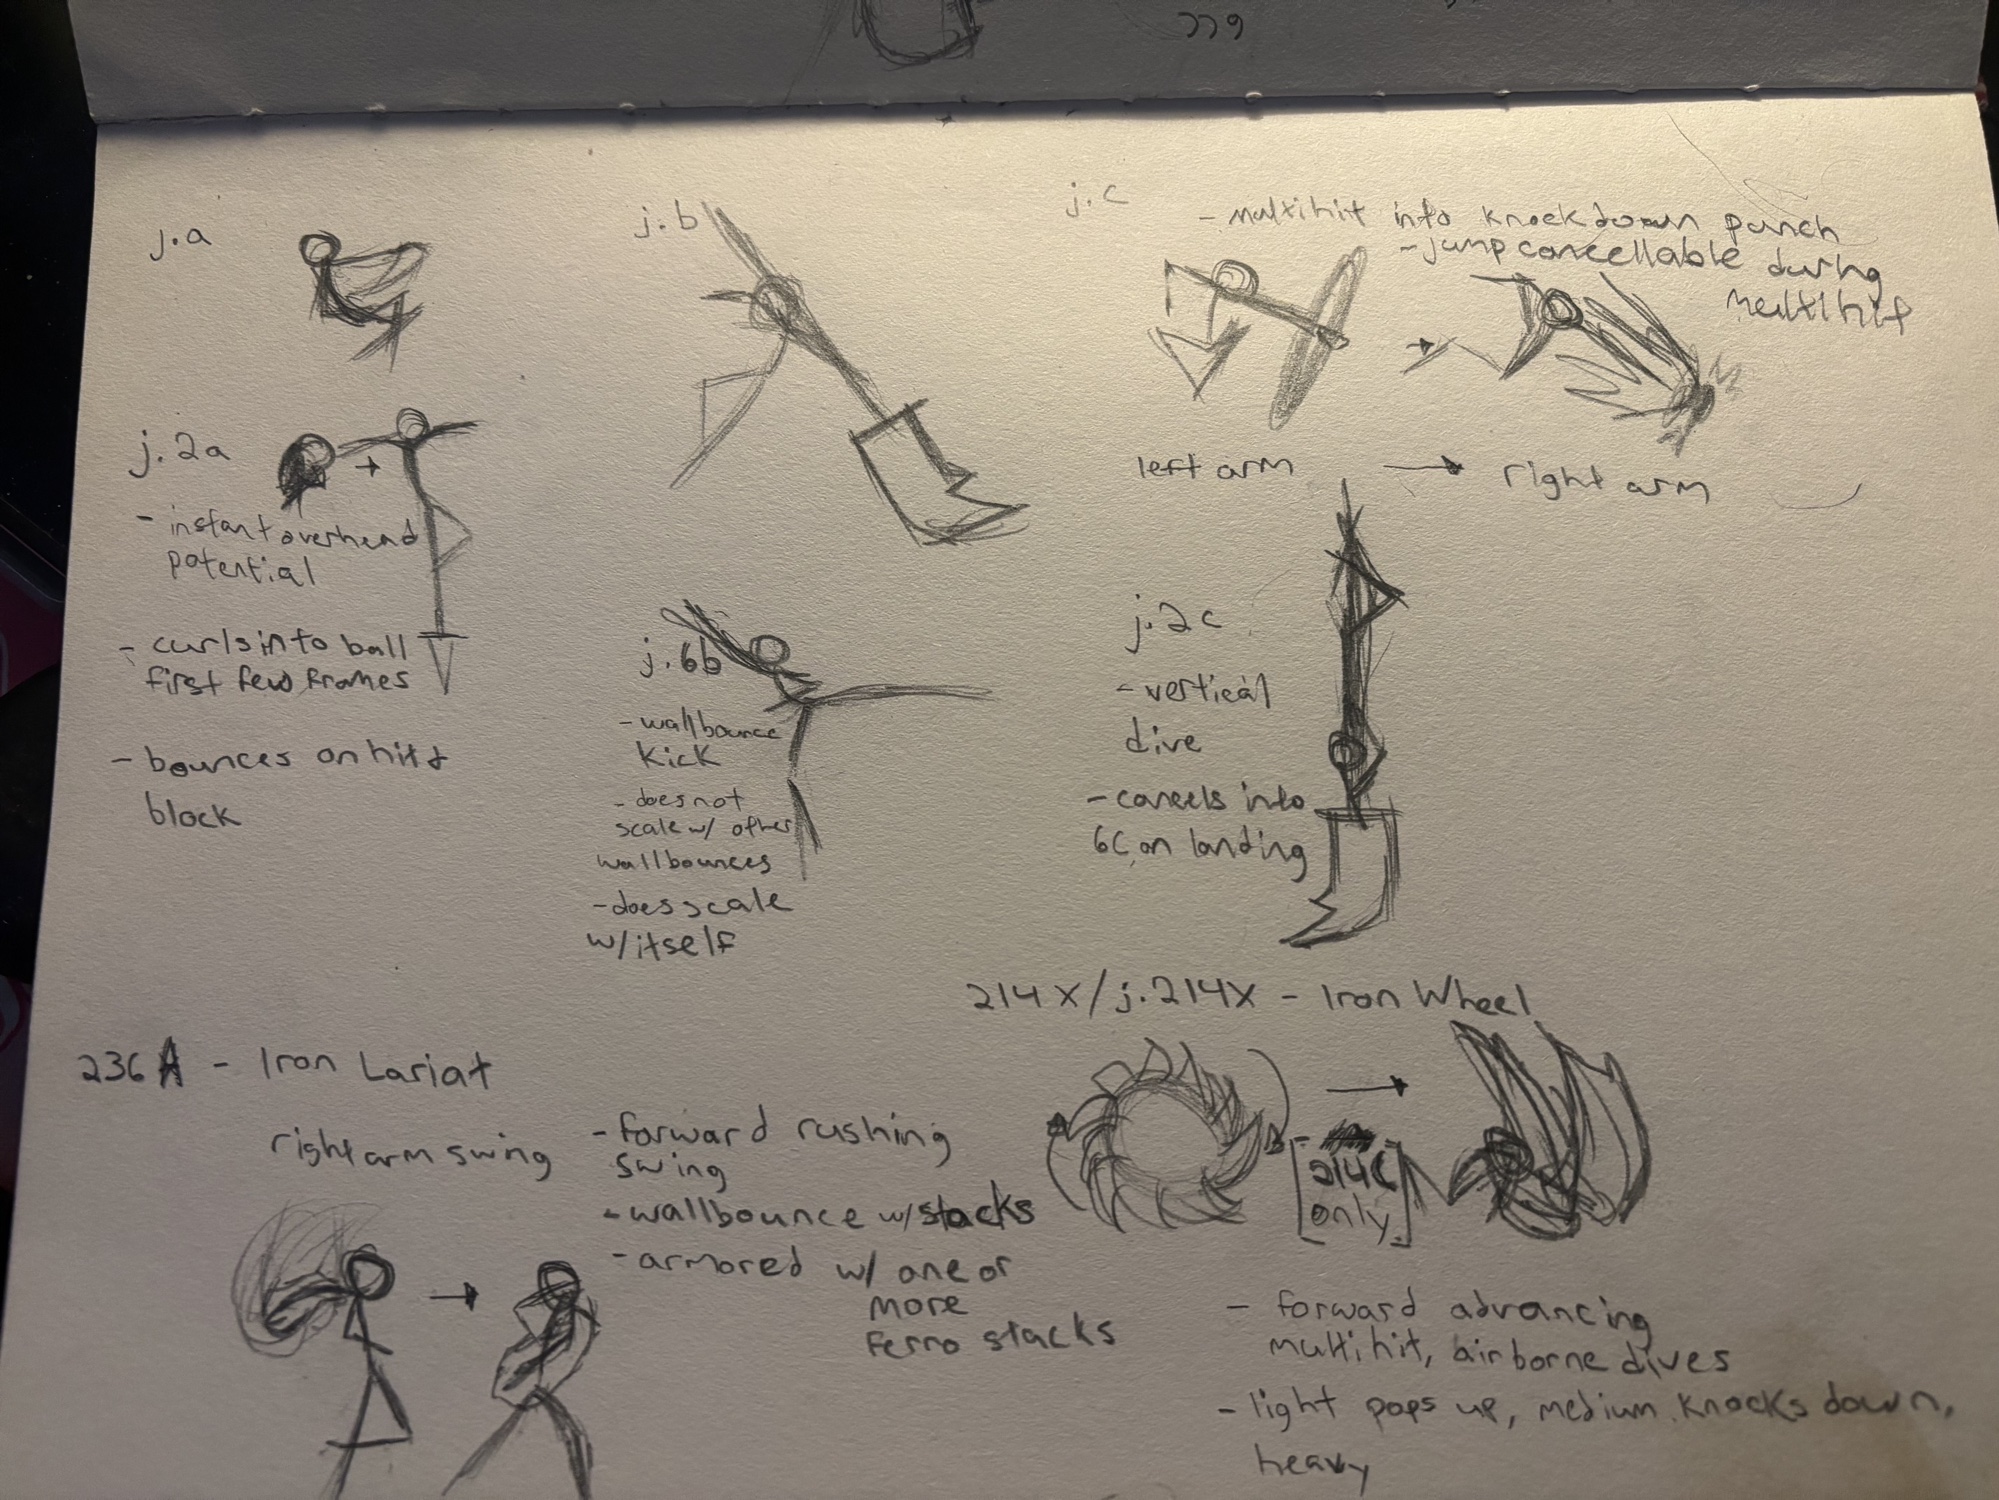 j.a
j.2a
- instant overhead
potential
- curls into ball
first few frames
- bounces on hit &
block
j.b
j.6b
- wallbounce
kick
- does not
scale w/ other
wallbounces
- does scale
w/itself
j.c
- multihit into knockdown punch
- jump cancellable during
multihit
left arm → right arm
j.2c
- vertical
dive
- cancels into
6C on landing
236A - Iron Lariat
right arm swing
- forward rushing
swing
- wallbounce w/stacks
- armored w/ one or
more
Ferro stacks
214X/j.214X - Iron Wheel
[214C
only]
- forward advancing
multihit, airborne dives
- light pops up, medium knocks down,
heavy